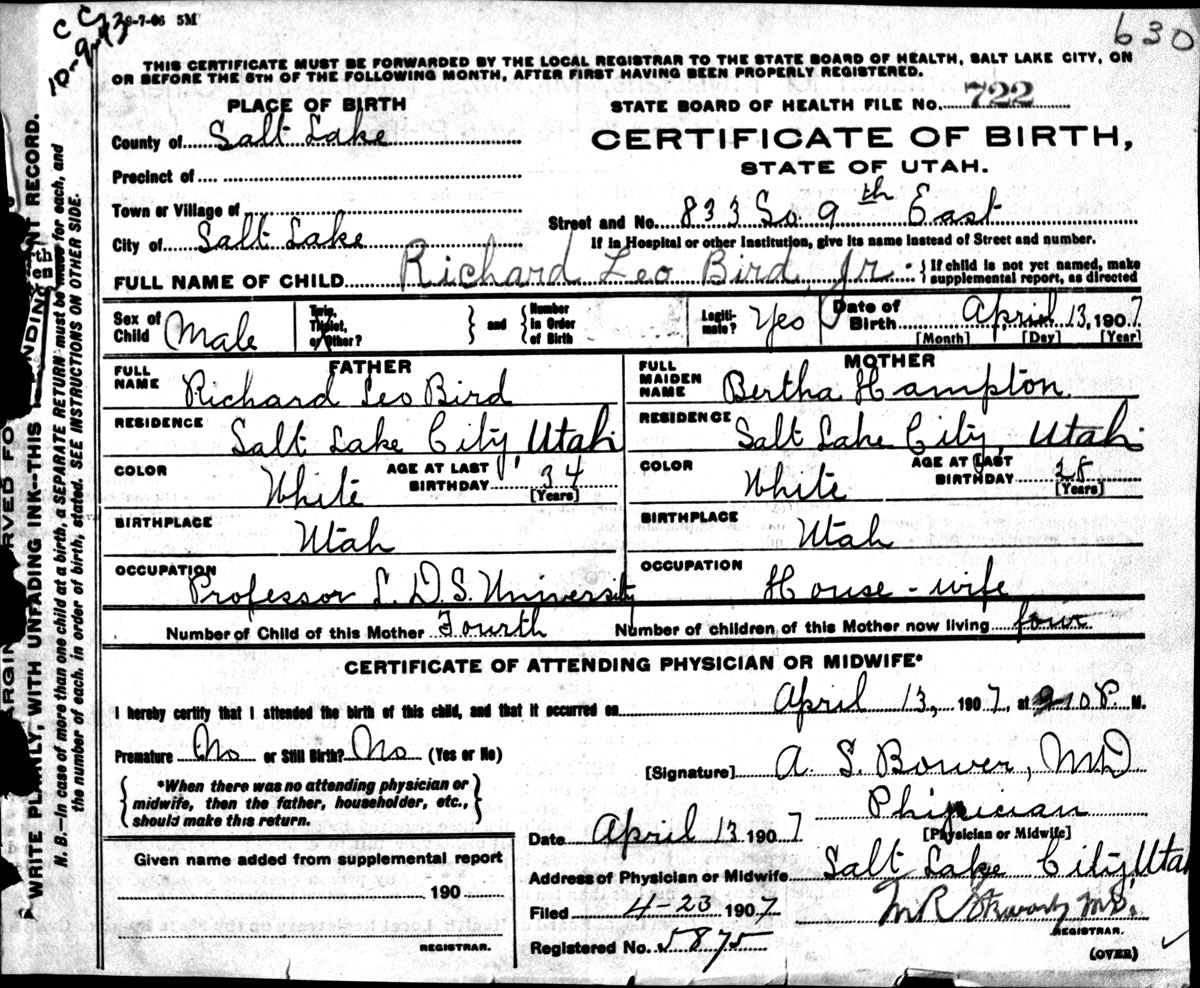 C C 9-7-06 5M
630
THIS CERTIFICATE MUST BE FORWARDED BY THE LOCAL REGISTRAR TO THE STATE BOARD OF HEALTH, SALT LAKE CITY, ON
OR BEFORE THE 5TH OF THE FOLLOWING MONTH, AFTER FIRST HAVING BEEN PROPERLY REGISTERED.
PLACE OF BIRTH
STATE BOARD OF HEALTH FILE NO. 722
County of Salt Lake
CERTIFICATE OF BIRTH,
STATE OF UTAH.
Precinct of
Town or Village of
Street and No. 833 So. 9th East
City of Salt Lake
If in Hospital or other Institution, give its name instead of Street and number.
FULL NAME OF CHILD Richard Leo Bird, Jr. { If child is not yet named, make
supplemental report, as directed
Sex of Child Male
Twin, Triplet, or Other? } and { Number in Order of Birth
Legitimate? Yes
Date of Birth April 13, 1907
[Month] [Day] [Year]
FATHER
MOTHER
FULL NAME Richard Leo Bird
FULL MAIDEN NAME Bertha Hampton
RESIDENCE Salt Lake City, Utah
RESIDENCE Salt Lake City, Utah
COLOR White AGE AT LAST BIRTHDAY 34 [Years]
COLOR White AGE AT LAST BIRTHDAY 28 [Years]
BIRTHPLACE Utah
BIRTHPLACE Utah
OCCUPATION Professor L. D. S. University
OCCUPATION House-wife
Number of Child of this Mother Fourth
Number of children of this Mother now living four
CERTIFICATE OF ATTENDING PHYSICIAN OR MIDWIFE*
I hereby certify that I attended the birth of this child, and that it occurred on April 13, 1907, at 10 P. M.
Premature No or Still Birth? No (Yes or No)
[Signature] A. S. Bower, MD
{ *When there was no attending physician or
midwife, then the father, householder, etc.,
should make this return. }
Physician
[Physician or Midwife]
Date April 13 1907
Given name added from supplemental report
Address of Physician or Midwife Salt Lake City, Utah
190
Filed 4-23 1907
REGISTRAR.
REGISTRAR.
Registered No. 5875
(OVER)
WRITE PLAINLY, WITH UNFADING INK--THIS
RECORD.
N. B.--In case of more than one child at a birth, a SEPARATE RETURN must be made for each, and
the number of each, in order of birth, stated. SEE INSTRUCTIONS ON OTHER SIDE.